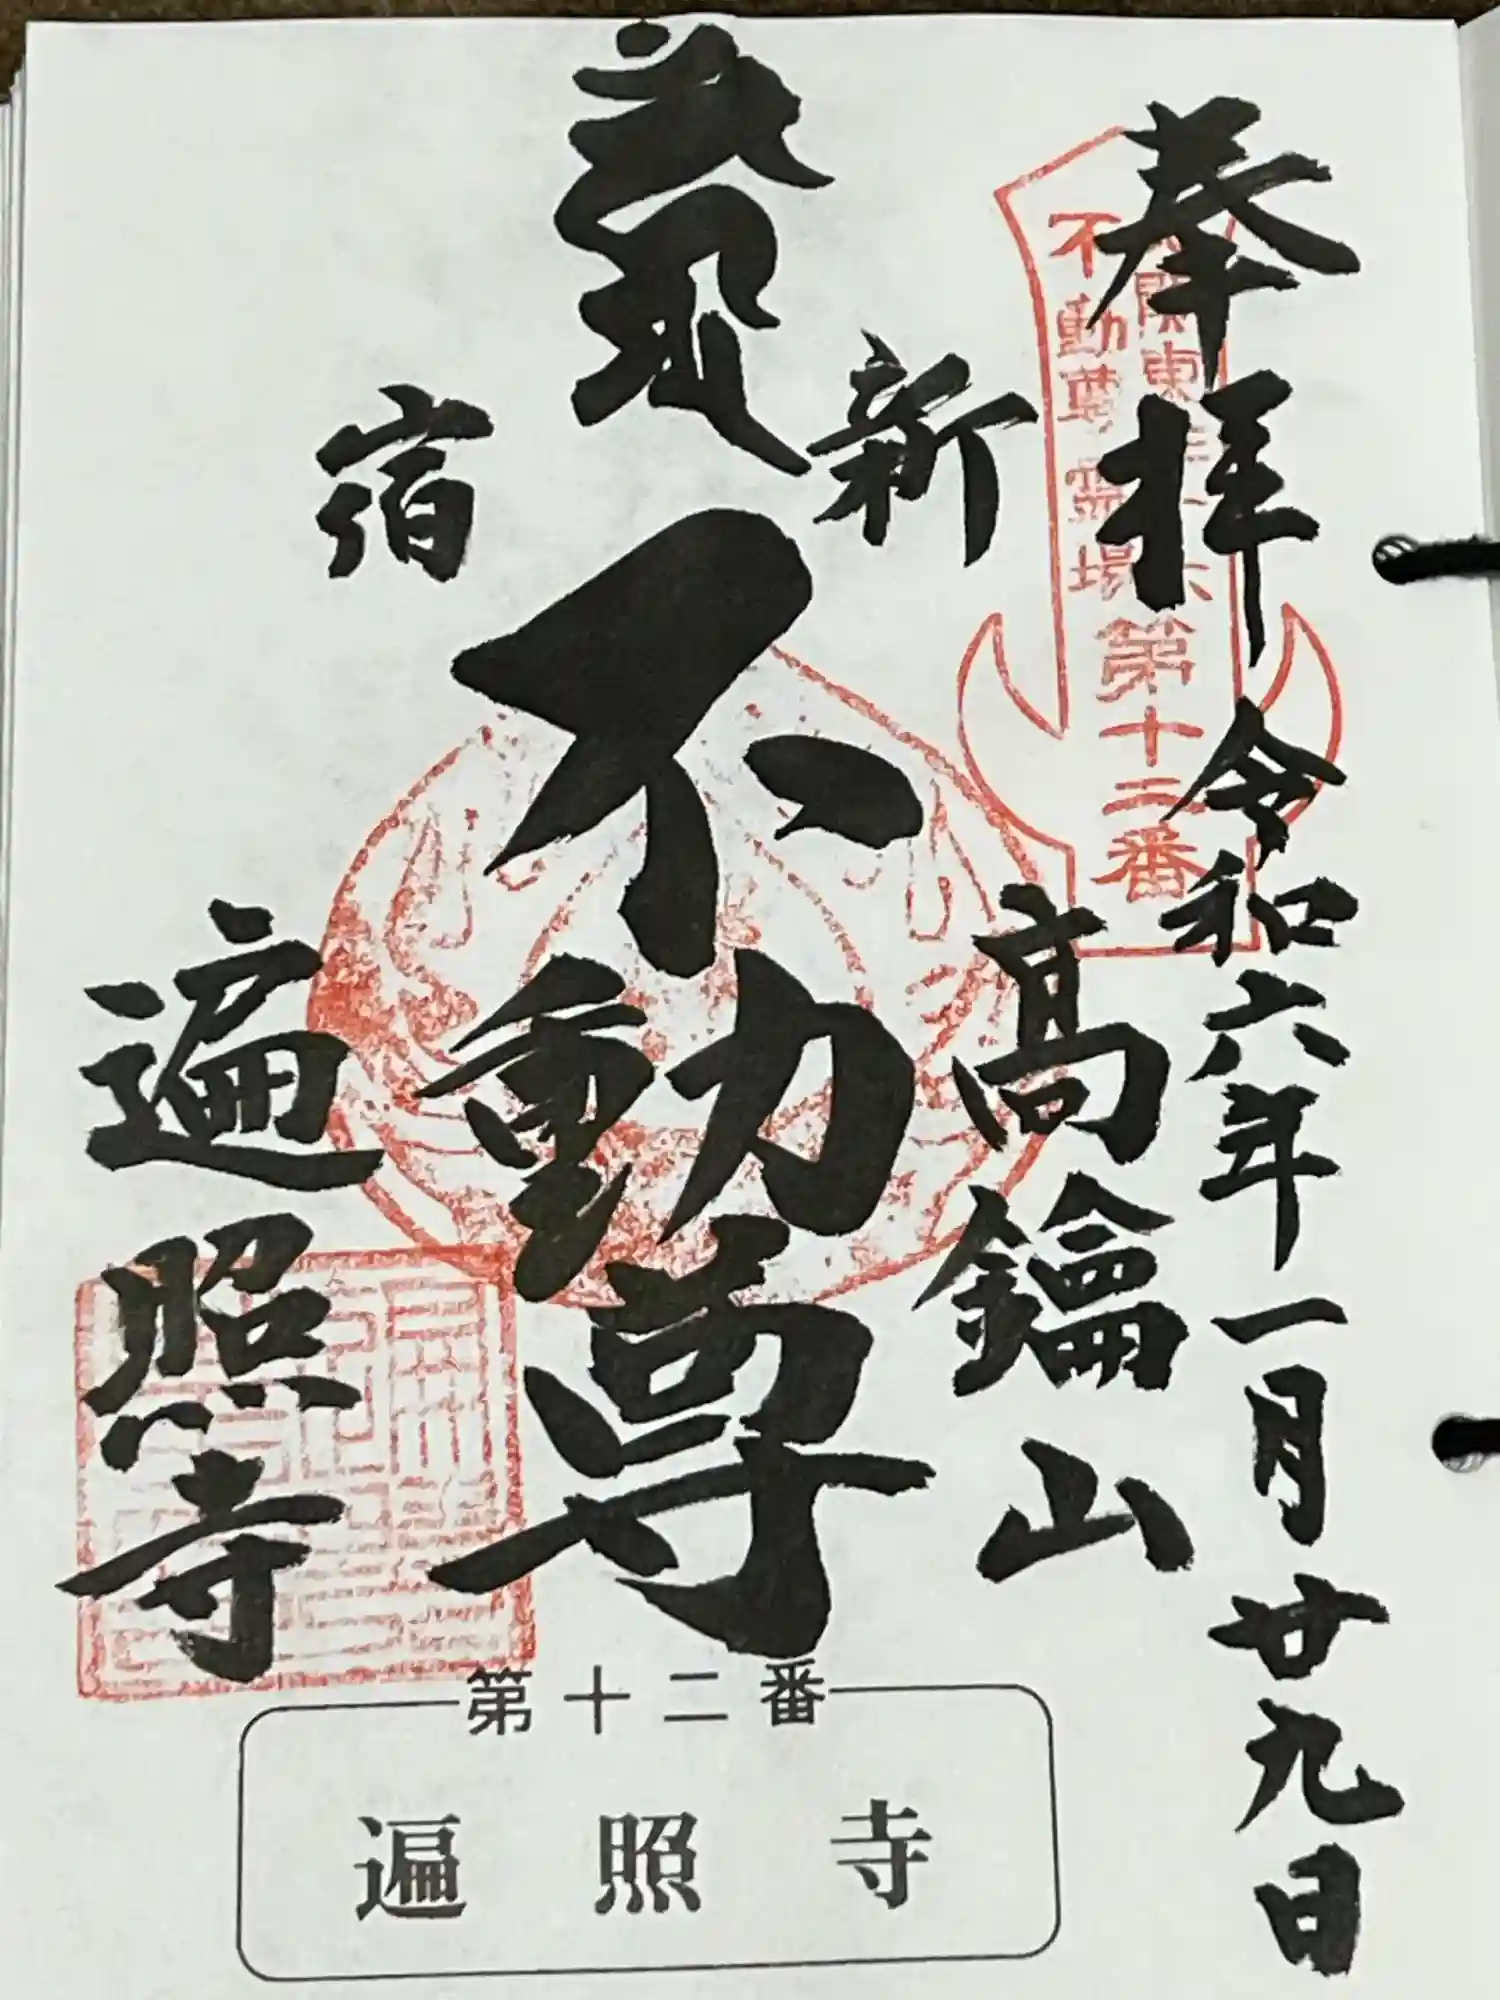 奉拝
令和六年一月廿九日
不動尊霊場
第十二番
高鑰山
新
宿
不動尊
遍照寺
第十二番
遍照寺